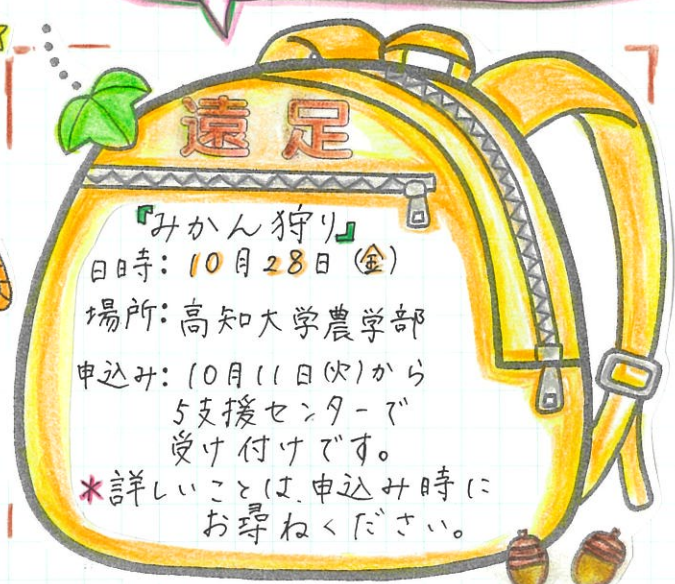 遠足
『みかん狩り』
日時：10月28日（金）
場所：高知大学農学部
申込み：10月11日（火）から
5支援センターで
受け付けです。
*詳しいことは、申込み時に
お尋ねください。